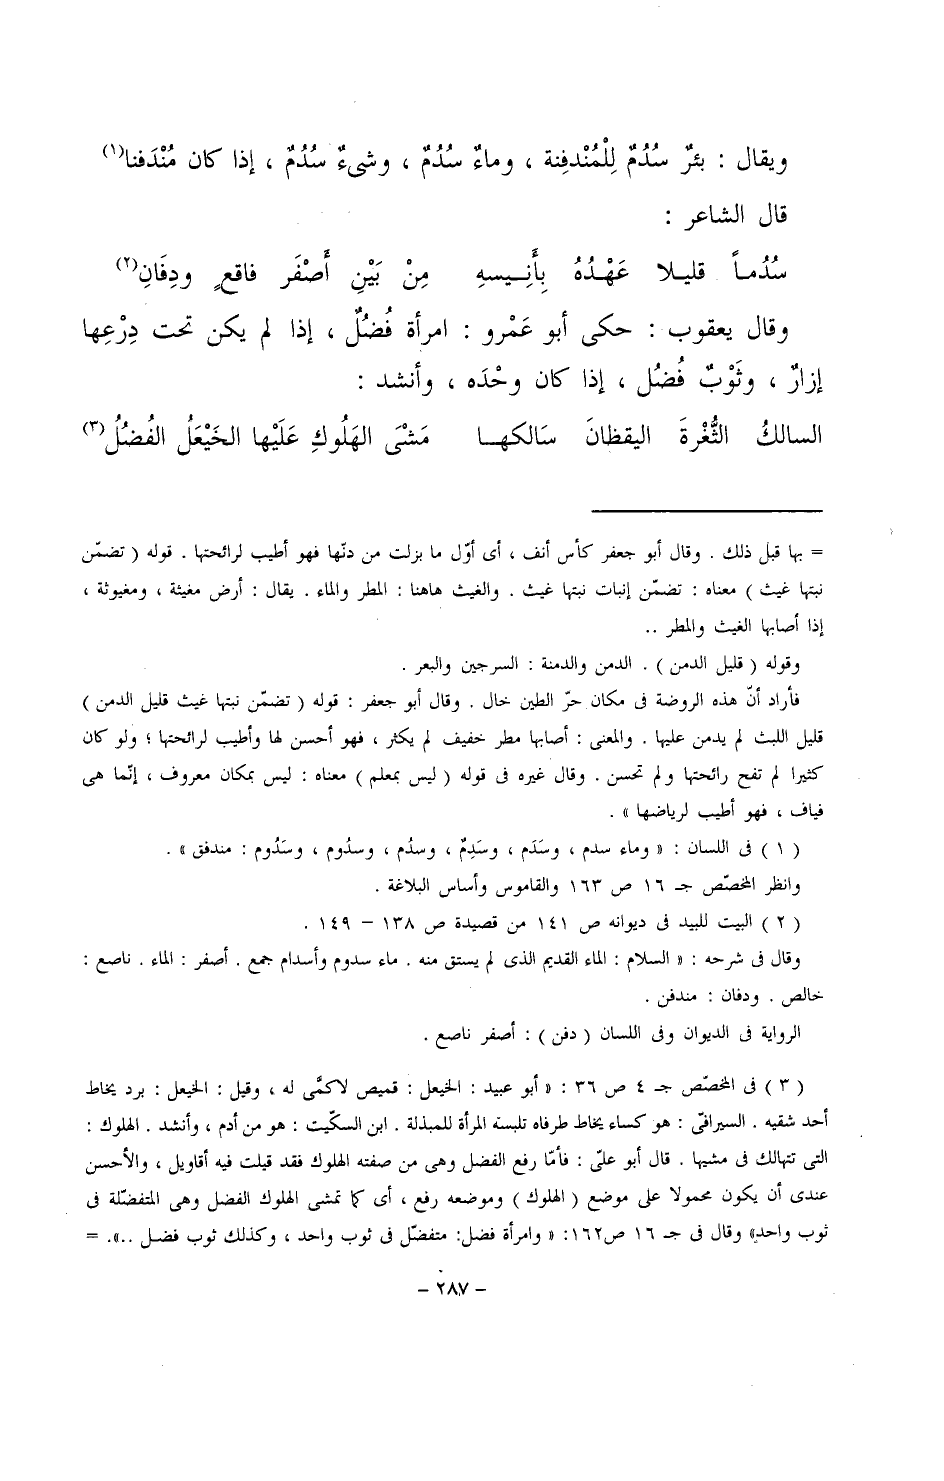 ويقال : بئرٌ سُدُمٌ لِلْمُنْدفِنة ، وماءٌ سُدُمٌ ، وشىءٌ سُدُمٌ ، إذا كان مُنْدَفنا(١)
قال الشاعر :
سُدُماً قليلا عَهْدُهُ بِأَنِيسهِ مِنْ بَيْنِ أَصْفَر فاقعٍ ودِفَانِ(٢)
وقال يعقوب : حكى أبو عَمْرو : امرأة فُضُلٌ ، إذا لم يكن تحت دِرْعِها
إزارٌ ، وثَوْبٌ فُضُل ، إذا كان وحْدَه ، وأنشد :
السالكُ الثُّغْرةَ اليقظانَ سَالكهـا مَشْىَ الهَلُوكِ عَلَيْها الخَيْعَلُ الفُضُلُ(٣)
= بها قبل ذلك . وقال أبو جعفر كأس أنف ، أى أوّل ما بزلت من دنّها فهو أطيب لرائحتها . قوله ( تضمّن
نبتها غيث ) معناه : تضمّن إنبات نبتها غيث . والغيث هاهنا : المطر والماء . يقال : أرض مغيثة ، ومغيوثة ،
إذا أصابها الغيث والمطر ..
وقوله ( قليل الدمن ) . الدمن والدمنة : السرجين والبعر .
فأراد أنّ هذه الروضة فى مكان حرّ الطين خال . وقال أبو جعفر : قوله ( تضمّن نبتها غيث قليل الدمن )
قليل اللبث لم يدمن عليها . والمعنى : أصابها مطر خفيف لم يكثر ، فهو أحسن لها وأطيب لرائحتها ؛ ولو كان
كثيرا لم تفح رائحتها ولم تحسن . وقال غيره فى قوله ( ليس بمعلم ) معناه : ليس بمكان معروف ، إنّما هى
فياف ، فهو أطيب لرياضها » .
( ١ ) فى اللسان : « وماء سدم ، وسَدَم ، وسَدِمٌ ، وسدُم ، وسدُوم ، وسَدُوم : مندفق » .
وانظر المخصّص جـ ١٦ ص ١٦٣ والقاموس وأساس البلاغة .
( ٢ ) البيت للبيد فى ديوانه ص ١٤١ من قصيدة ص ١٣٨ – ١٤٩ .
وقال فى شرحه : « السلام : الماء القديم الذى لم يستق منه . ماء سدوم وأسدام جمع . أصفر : الماء . ناصع :
خالص . ودفان : مندفن .
الرواية فى الديوان وفى اللسان ( دفن ) : أصفر ناصع .
( ٣ ) فى المخصّص جـ ٤ ص ٣٦ : « أبو عبيد : الخيعل : قميص لاكمَّى له ، وقيل : الخيعل : برد يخاط
أحد شقيه . السيرافىّ : هو كساء يخاط طرفاه تلبسه المرأة للمبذلة . ابن السكّيت : هو من أدم ، وأنشد . الهلوك :
التى تتهالك فى مشيها . قال أبو علىّ : فأمّا رفع الفضل وهى من صفته الهلوك فقد قيلت فيه أقاويل ، والأحسن
عندى أن يكون محمولا على موضع ( الهلوك ) وموضعه رفع ، أى كما تمشى الهلوك الفضل وهى المتفضّلة فى
ثوب واحد» وقال فى جـ ١٦ ص١٦٢: « وامرأة فضل: متفضّل فى ثوب واحد ، وكذلك ثوب فضـل ..». =
– ٢٨٧ –